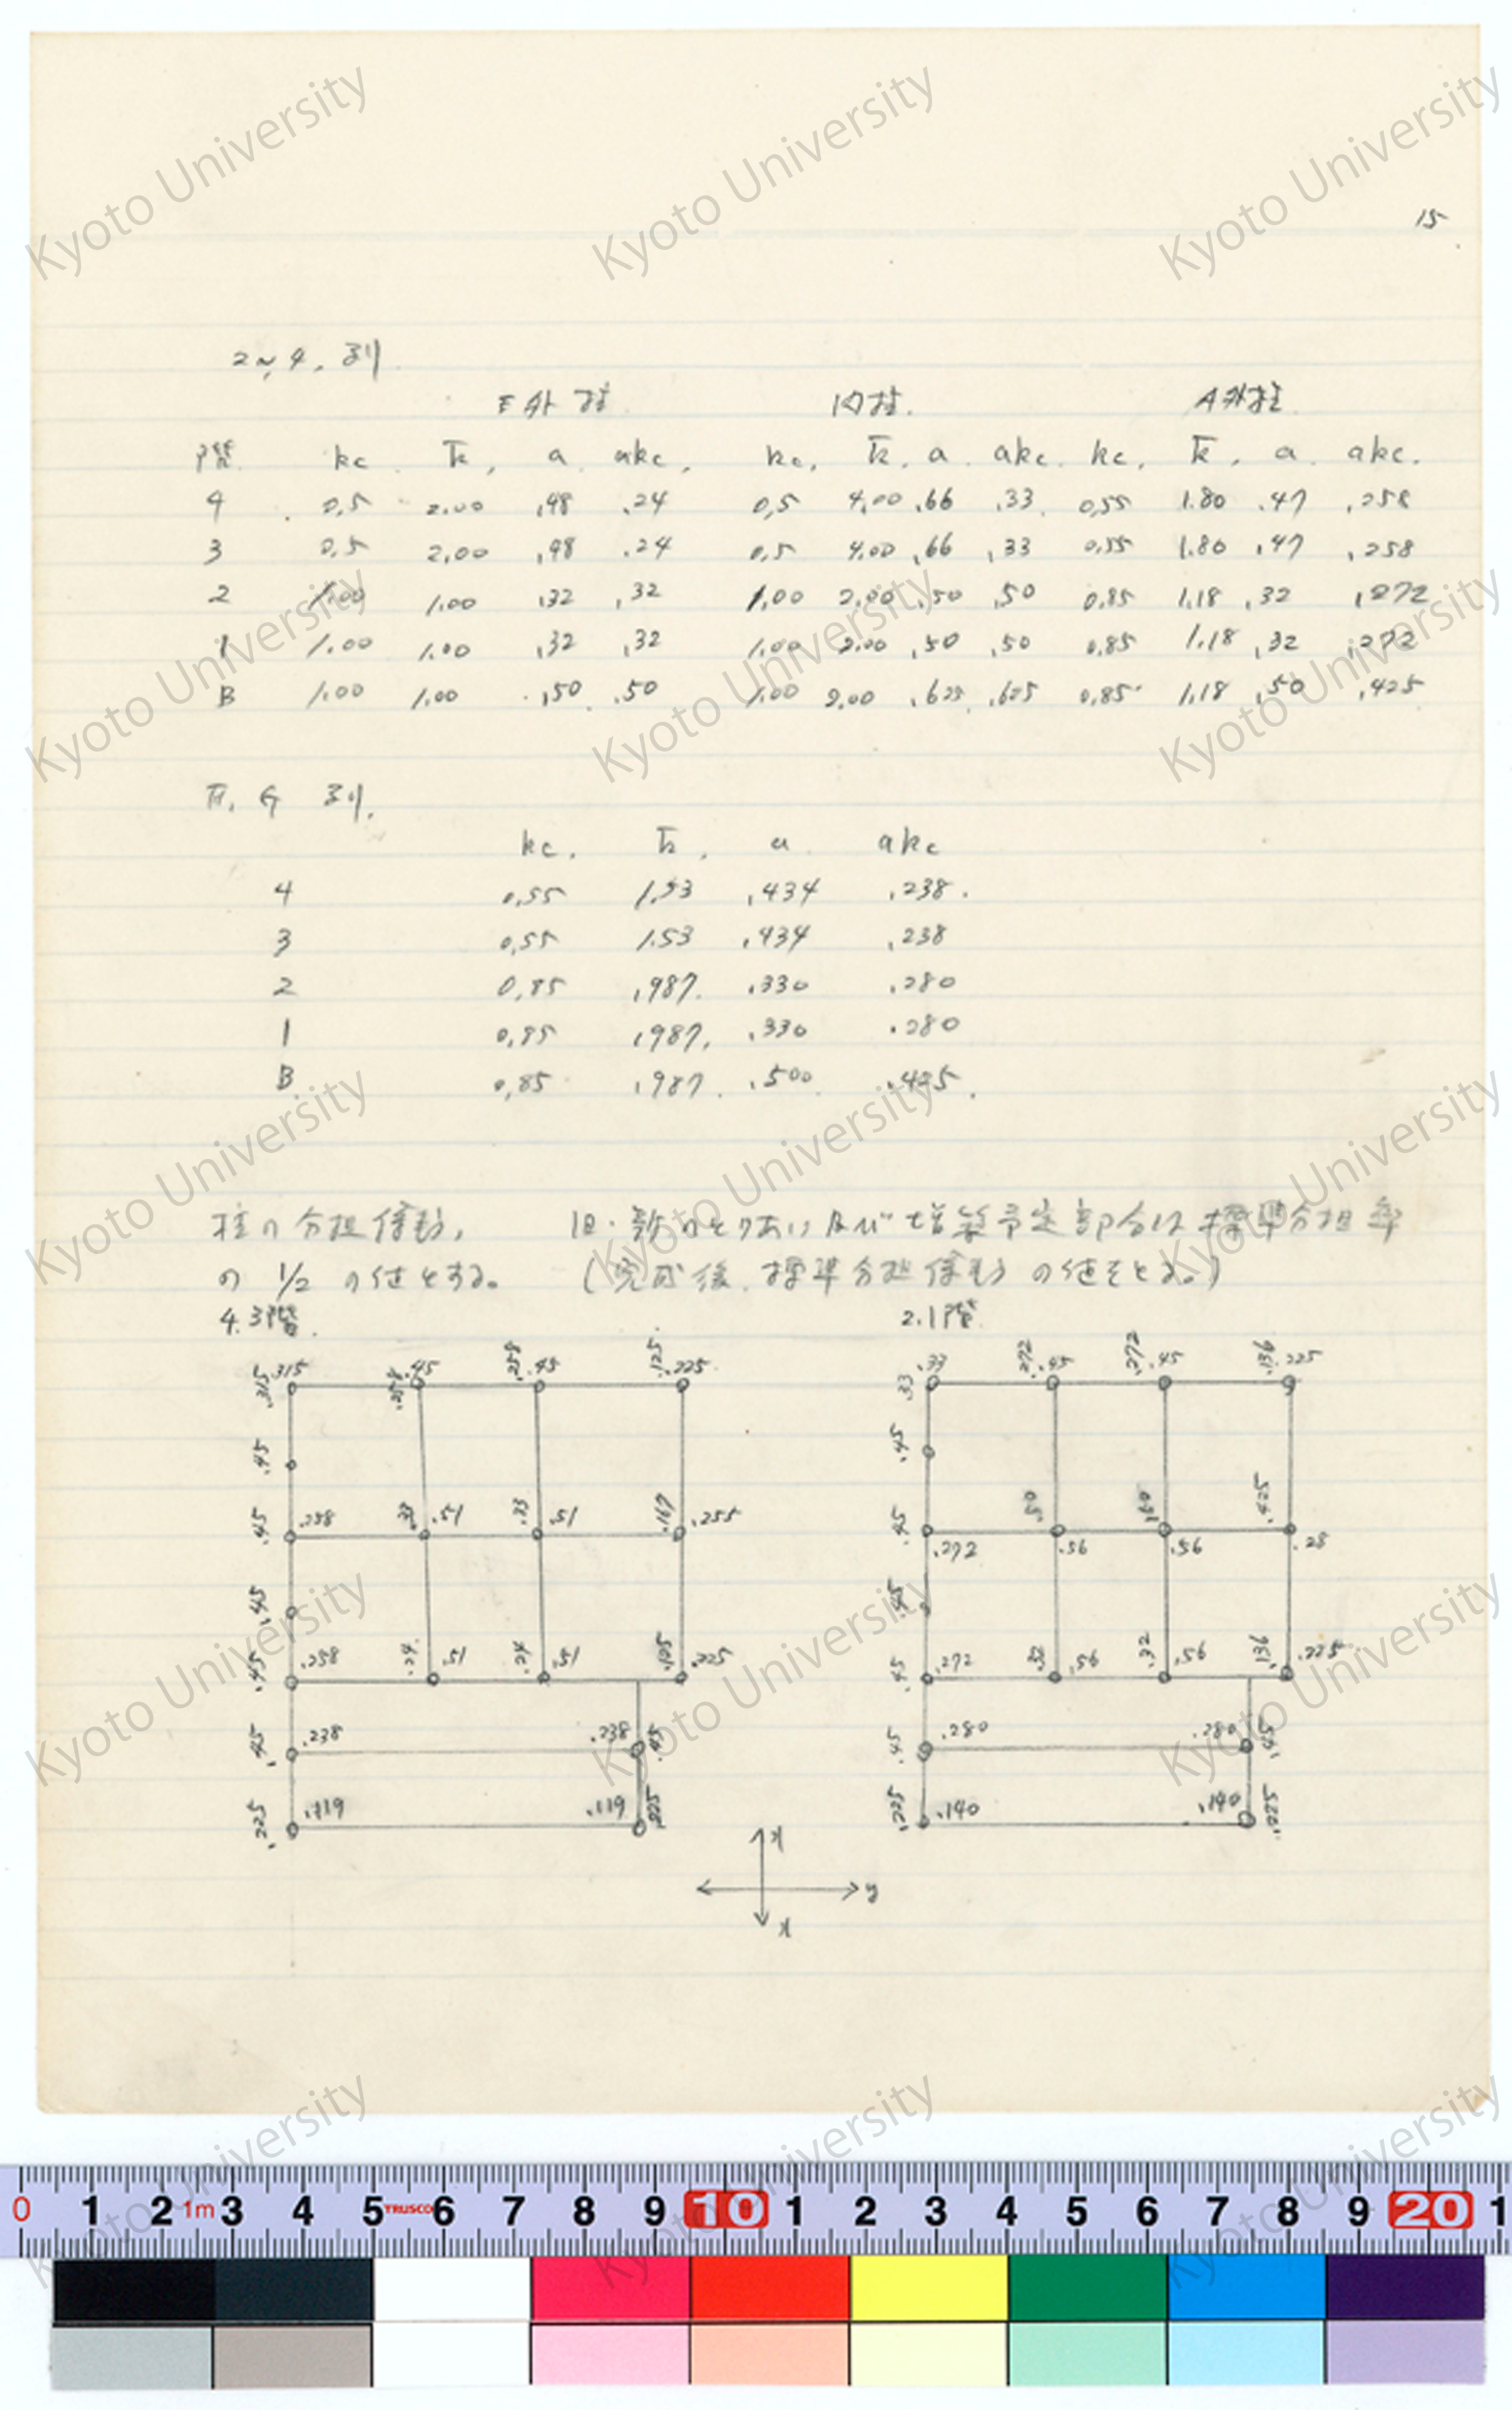 15
2~4. 列.
E外柱 内柱. A外柱
階 kc. k̄. a. akc. kc. k̄. a. akc. kc. k̄. a. akc.
4 0,5 2.00 ,48 .24 0,5 4.00 .66 .33 0,55 1.80 .47 ,258
3 0,5 2,00 ,48 .24 0,5 4.00 ,66 ,33 0,55 1.80 ,47 ,258
2 1,00 1,00 ,32 ,32 1,00 2,00 ,50 ,50 0,85 1,18 ,32 ,272
1 1,00 1,00 ,32 ,32 1,00 2.00 ,50 ,50 0,85 1,18 ,32 ,272
B 1,00 1,00 ,50 .50 1,00 2,00 ,625 ,625 0,85 1,18 ,50 ,425
F. G 列.
kc. k̄. a. akc
4 0,55 1,53 ,434 ,238.
3 0,55 1.53 ,434 ,238
2 0,85 ,987. .330 .280
1 0,85 ,987. .330 .280
B 0,85 ,987. .500 .425.
柱の分担係数, 但・新のとりあい及び増築予定部分は標準分担率
の 1/2 の値とする。 (完成後、標準分担係数の値をとる。)
4.3階. 2.1階.
.315 .315 .258 .45 .258 .45 .125 .225
.45
.45 .258 .33 .51 .33 .51 .167 .255
.45
.45 .258 .24 .51 .24 .51 .225
.45 .238 .238 .45
.225 .119 .119 .225
.33 .33 .272 .45 .272 .45 .136 .225
.45
.45 .272 .50 .56 .50 .56 .425 .28
.45
.45 .272 .32 .56 .32 .56 .136 .225
.45 .280 .280 .45
.225 .140 .140 .225
x
y
x
Kyoto University
0 1 2 1m 3 4 5 TRUSCO 6 7 8 9 10 1 2 3 4 5 6 7 8 9 20 1